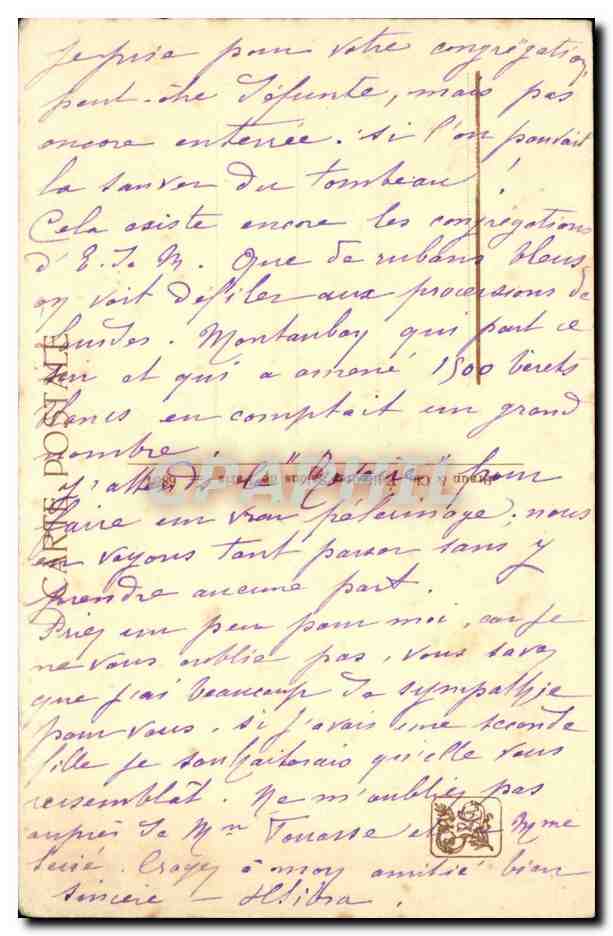 Je prie pour votre congrégation,
peut-être défunte, mais pas
encore enterrée. si l'on pouvait
la sauver du tombeau !
Cela existe encore les congrégations
d'E. d M. Que de rubans bleus
on voit défiler aux processions de
Lourdes. Montauban qui part ce
soir et qui a amené 1500 bérets
blancs en comptait un grand
nombre.
J'attends le " Rosaire " pour
faire un vrai pèlerinage. nous
en voyons tant passer sans y
prendre aucune part.
Priez un peu pour moi, car je
ne vous oublie pas, vous savez
que j'ai beaucoup de sympathie
pour vous, si j'avais une seconde
fille je souhaiterais qu'elle vous
ressemblât. Ne m'oubliez pas
auprès de Mme et Mme
Croyez à mon amitié bien
sincère —
CARTE POSTALE
CPAPHIL